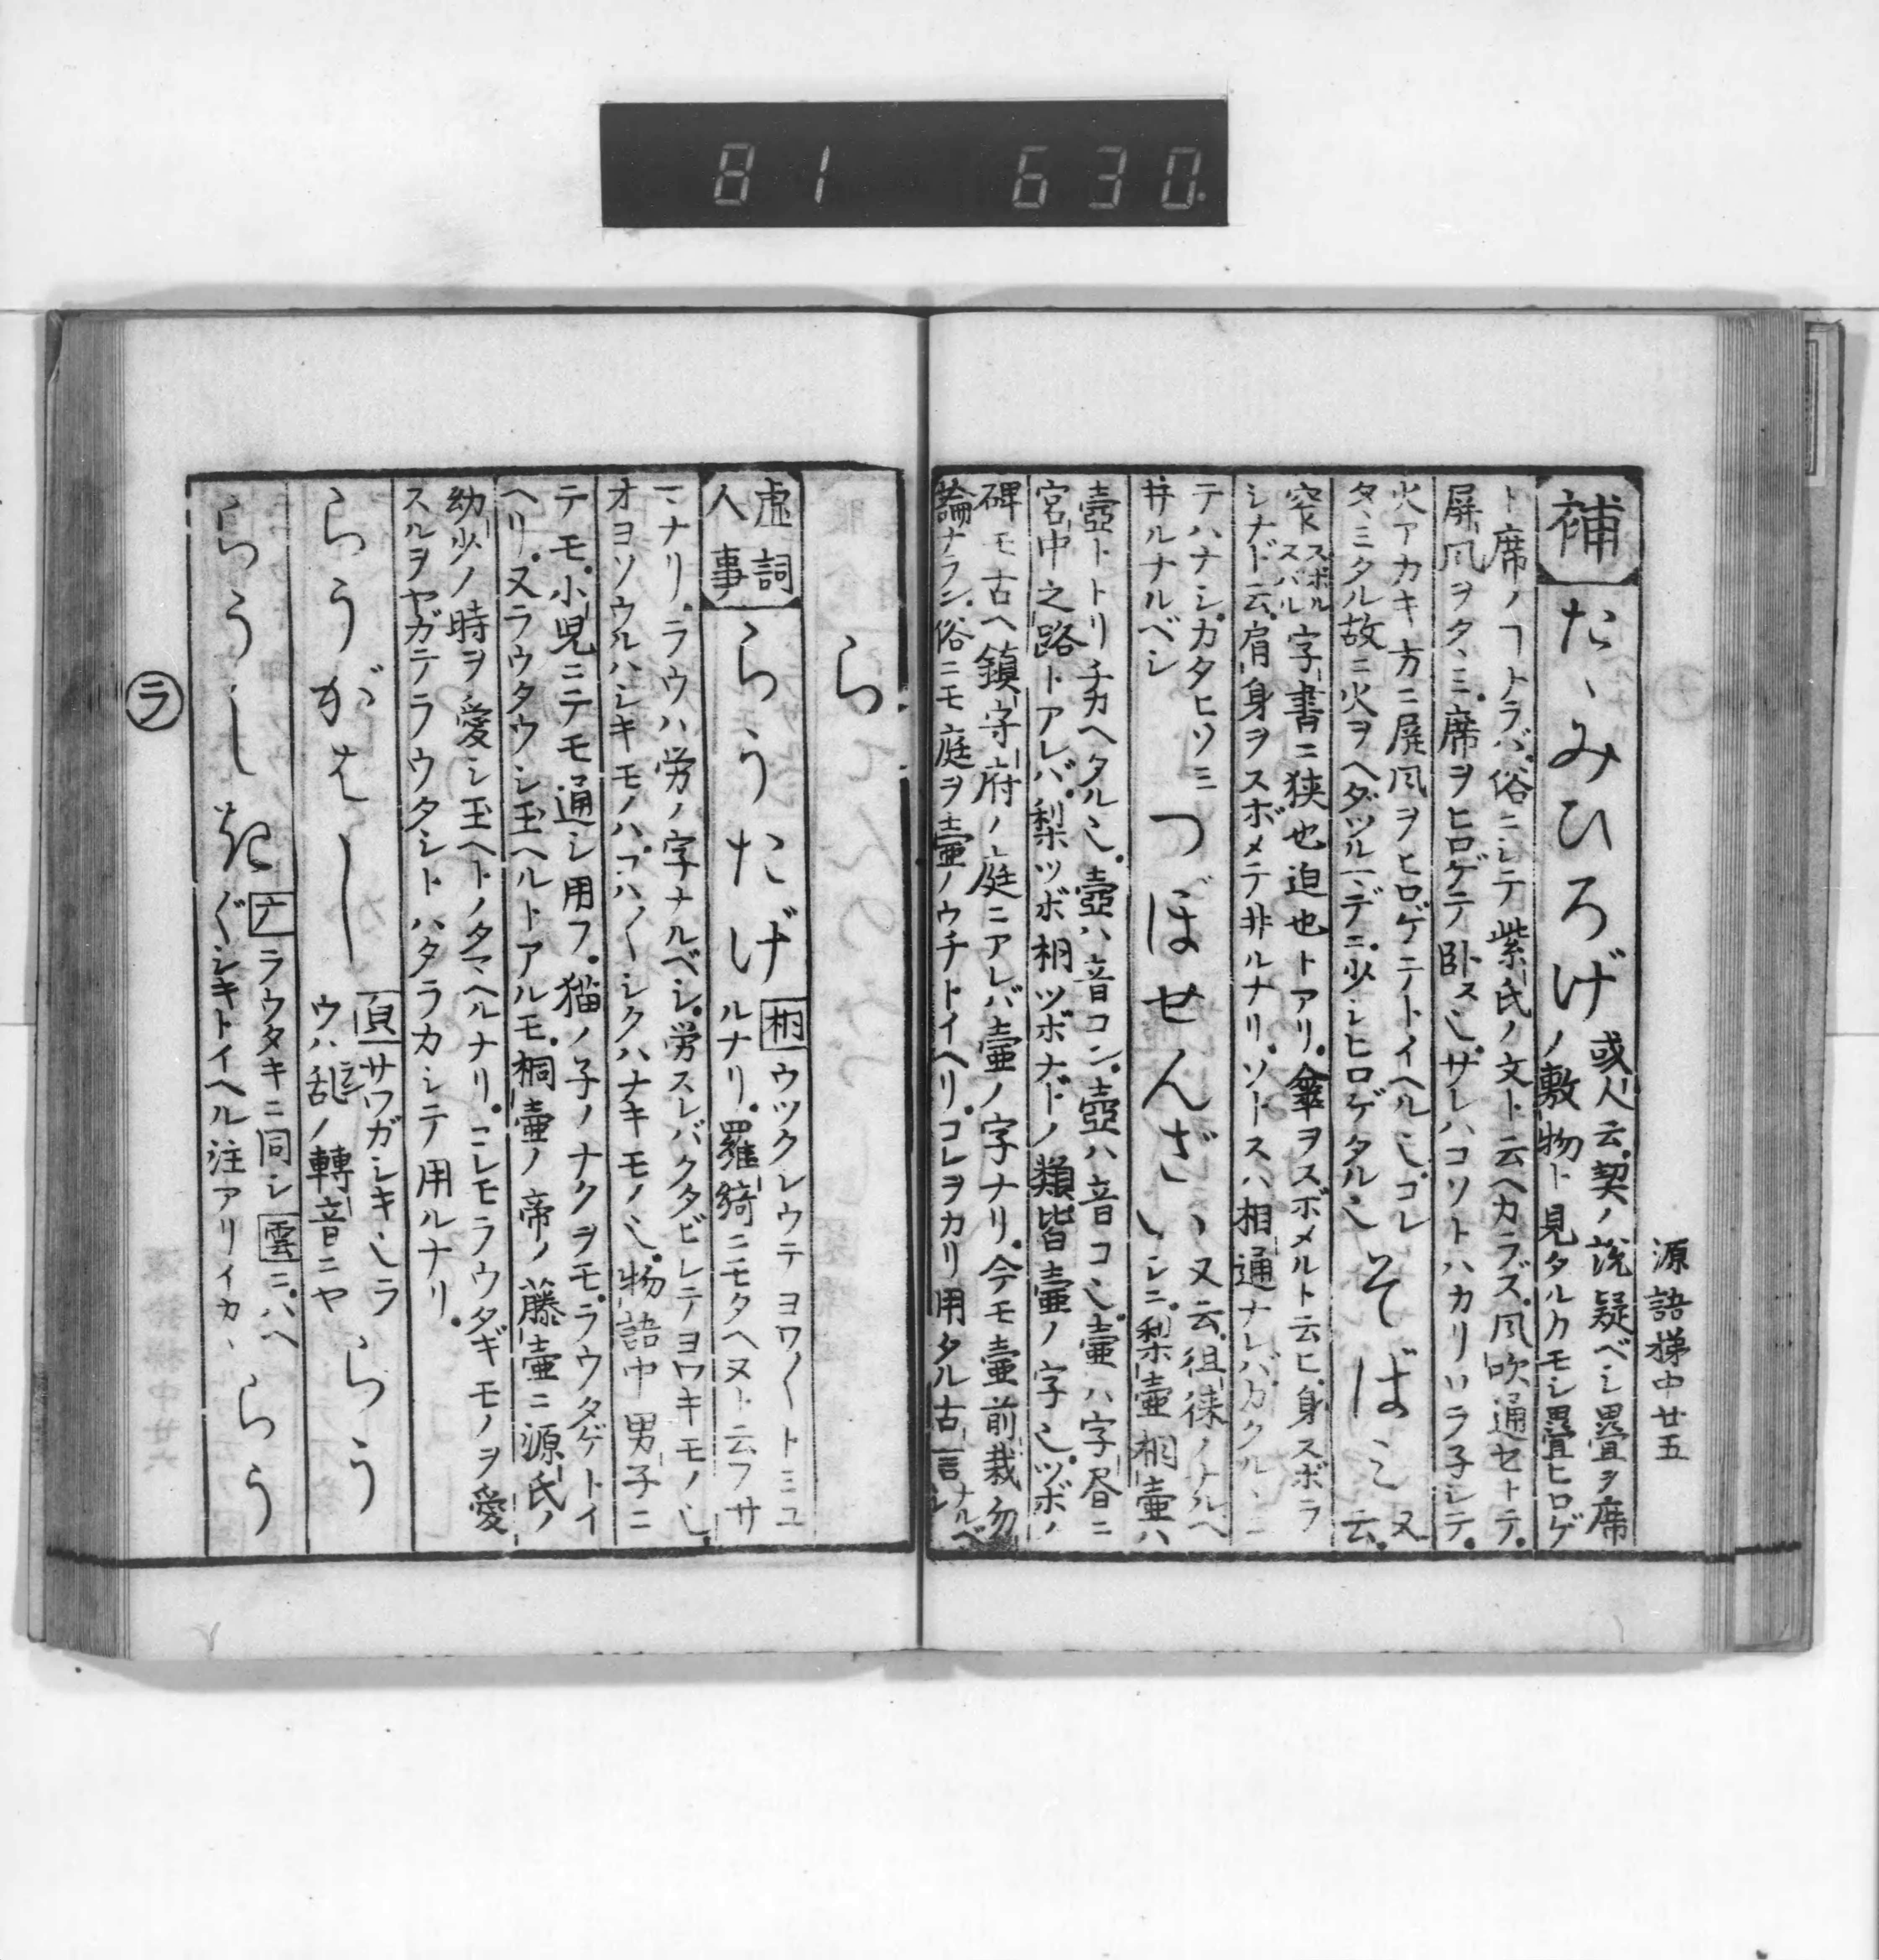 81 630
源語梯中廿五
補
たゝみひろげ
或人云契ノ説疑ベシ畳ヲ席
ノ敷物ト見タルカモシ畳ヒロゲ
ト席ノヿトラバ俗ニシテ紫氏ノ文ト云ヘカラズ風吹通セトテ
屏風ヲタヽミ席ヲヒロゲテ臥ス也サレハコソトハカリ
火アカキ方ニ屏風ヲヒロゲニテトイヘル也コレ
タヽミタル故ニ火ヲヘダツルマデニ少シヒロゲタル也
そばみ
又云
窄スボルスバル字書ニ狭也迫也トアリ傘ヲスボメルト云ヒ身スボラ
シナド云肩身ヲスボメテ井ルナリソトスハ相通ナレバカクルヽニ
テハナシカタヒソミ
井ルナルベシ
つぼせんざい
又云徂徠ノナルヘ
シニ梨壷桐壷ハ
壺トトリチカヘタル也壺ハ音コン壺ハ音コ也壷ハ字昏ニ
宮中之路トアレバ梨ツボ桐ツボナドノ類皆壷ノ字也ツボノ
碑モ古ヘ鎮守府ノ庭ニアレバ壷ノ字ナリ今モ壷前栽勿
論ナラン俗ニモ庭ヲ壷ノウチトイヘリコレヲカリ用タル古言ナルベシ
ら
虚詞
人事
らうたげ
桐ウツクシウテヨワ〱トミユ
ルナリ羅綺ニモタヘヌト云フサ
マナリラウハ労ノ字ナルベシ労スレバクタビレテヨワキモノ也
オヨソウルハシキモノハコハ〱シクハナキモノ也物語中男子ニ
テモ小児ニテモ通シ用フ猫ノ子ノナクヲモラウタゲトイ
ヘリ又ラウタウシ玉ヘルトアルモ桐壷ノ帝ノ藤壷ニ源氏ノ
幼少ノ時ヲ愛シ玉ヘトノタマヘルナリコレモラウタギモノヲ愛
スルヲヤガテラウタシトハタラカシテ用ルナリ
らうがはし
サワガシキ也ラ
ウハ乱ノ轉音ニヤ
らう
らうしき
ナラウタキニ同シ雲ニハヘ
グシキトイヘル注アリイカヽ
らう
ラ